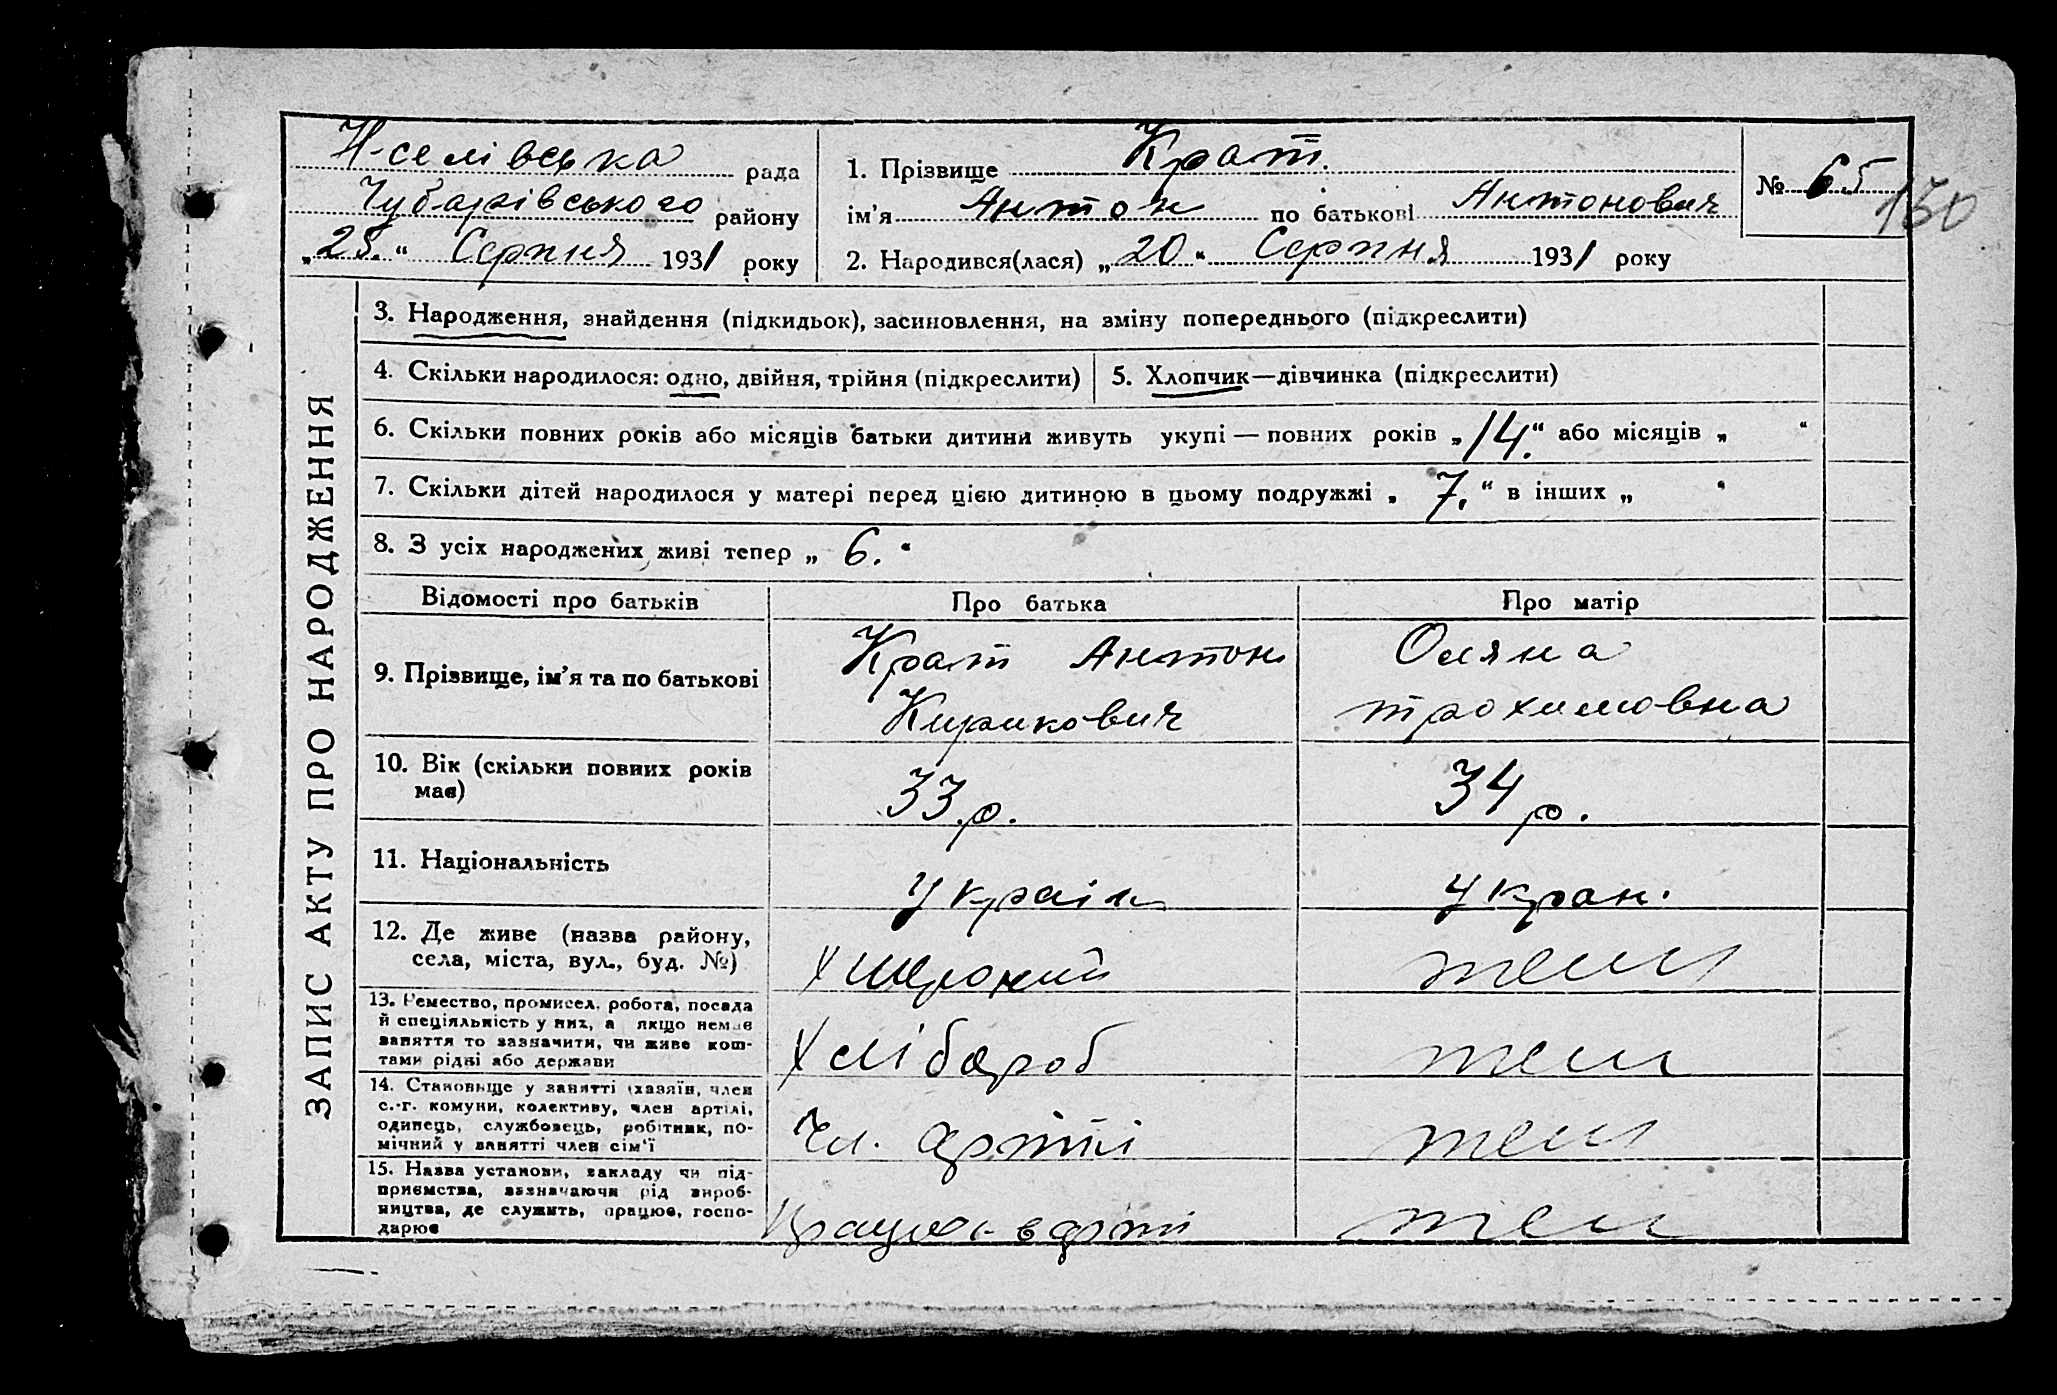 Н-селівська рада
Чубарівського району
„25.“ Серпня 1931 року
1. Прізвище Крат.
ім'я Антон по батькові Антонович
2. Народився(лася) „20“ Серпня 1931 року
№ 65
150
ЗАПИС АКТУ ПРО НАРОДЖЕННЯ
3. Народження, знайдення (підкидьок), засиновлення, на зміну попереднього (підкреслити)
4. Скільки народилося: одно, двійня, трійня (підкреслити)
5. Хлопчик—дівчинка (підкреслити)
6. Скільки повних років або місяців батьки дитини живуть укупі — повних років „14.“ або місяців „ “
7. Скільки дітей народилося у матері перед цією дитиною в цьому подружжі „7.“ в інших „ “
8. З усіх народжених живі тепер „6.“
Відомості про батьків
Про батька
Про матір
9. Прізвище, ім'я та по батькові
Крат Антон
Кирикович
Оляна
трохимовна
10. Вік (скільки повних років
має)
33 р.
34 р.
11. Національність
україн
укран.
12. Де живе (назва району,
села, міста, вул., буд. №)
Х Широкий
13. Ремество, промисел, робота, посада
й спеціяльність у них, а якщо немає
заняття то зазначити, чи живе кош-
тами рідні або держави
Хлібороб
14. Становище у занятті (хазяїн, член
с.-г. комуни, колективу, член артілі,
одинець, службовець, робітник, по-
мічний у занятті член сім'ї
Чл. артілі
15. Назва установи, закладу чи під-
приємства, зазначаючи рід вироб-
ництва, де служить, працює, госпо-
дарює
працює в арті